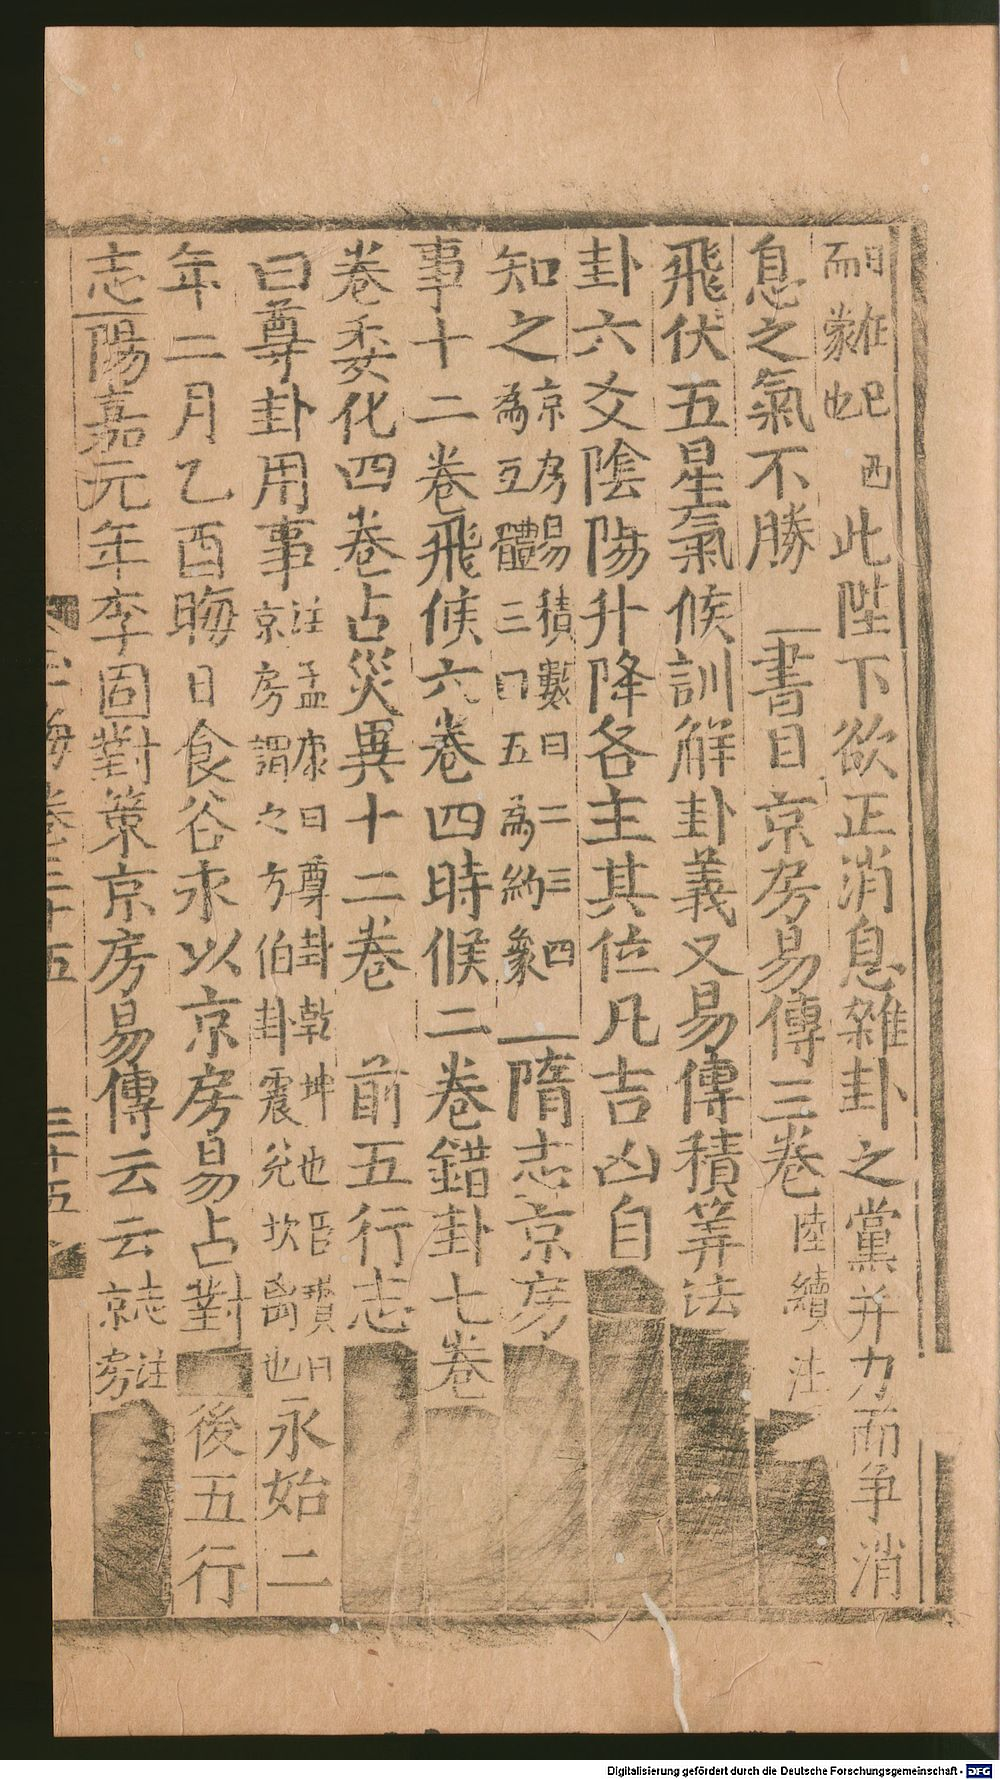 日在巳酉而蒙也此陛下欲正消息雜卦之黨并力而爭消
息之氣不勝書目京房易傳三卷陸續注
飛伏五星氣候訓解卦義又易傳積筭法
卦六爻陰陽升降各主其位凡吉凶自
知之京房易積數曰二三四為互體三四五為約象隋志京房
事十二卷飛候六卷四時候二卷錯卦七卷
卷委化四卷占災異十二卷前五行志
曰尊卦用事注孟康曰尊卦乾坤也臣瓚曰京房謂之方伯卦震兌坎离也永始二
年二月乙酉晦日食谷永以京房易占對後五行
志陽嘉元年李固對策京房易傳云云志注京房
海卷三十五
三十五
Digitalisierung gefördert durch die Deutsche Forschungsgemeinschaft - DFG